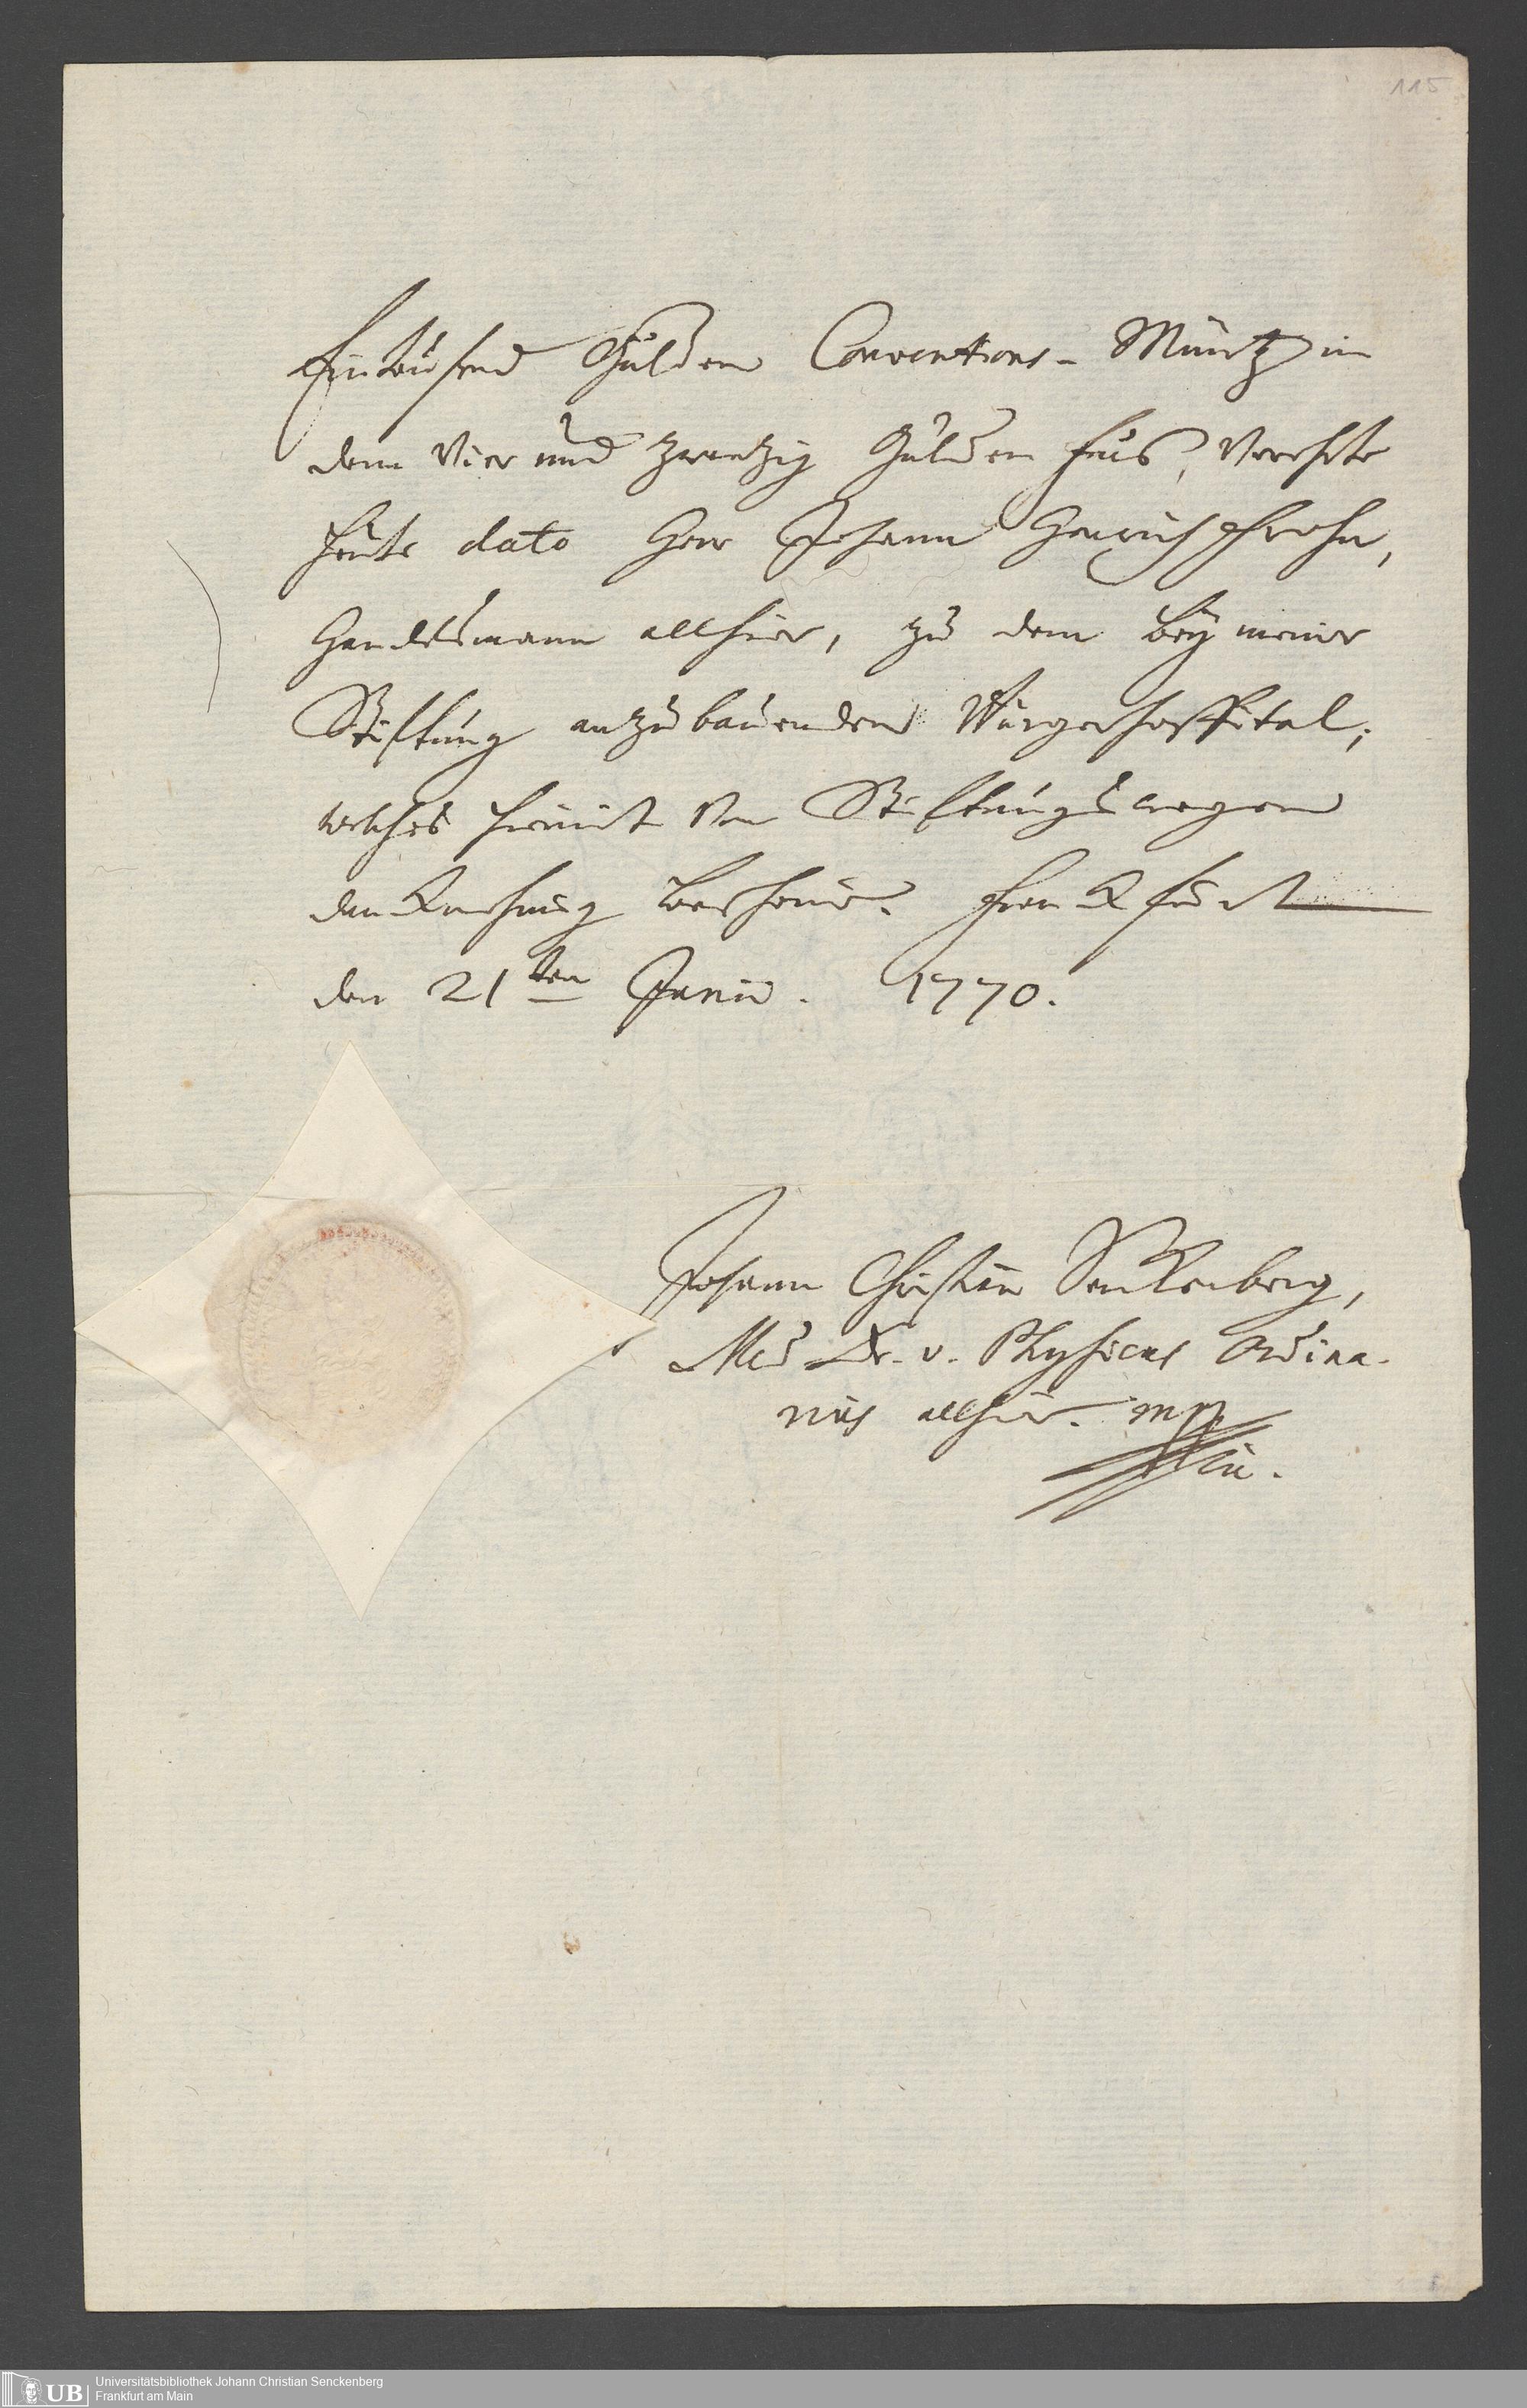 115
Eintausend Gulden Conventions-Müntz in
dem Vier und zwantzig Gulden fus, Verehrte
heute dato Herr Johann Henrich
Handelsmann allhier, zu dem bey meiner
Stiftung anzubauenden Bürgerhospital;
welches hiemit Von Stiftungs wegen
danknehmig bescheine. Franckfurt
den 21ten Junii. 1770.
Johann Christian Senckenberg,
Med Dr. u. Physicus Ordina-
rius allhier. mp
UB Universitätsbibliothek Johann Christian Senckenberg
Frankfurt am Main